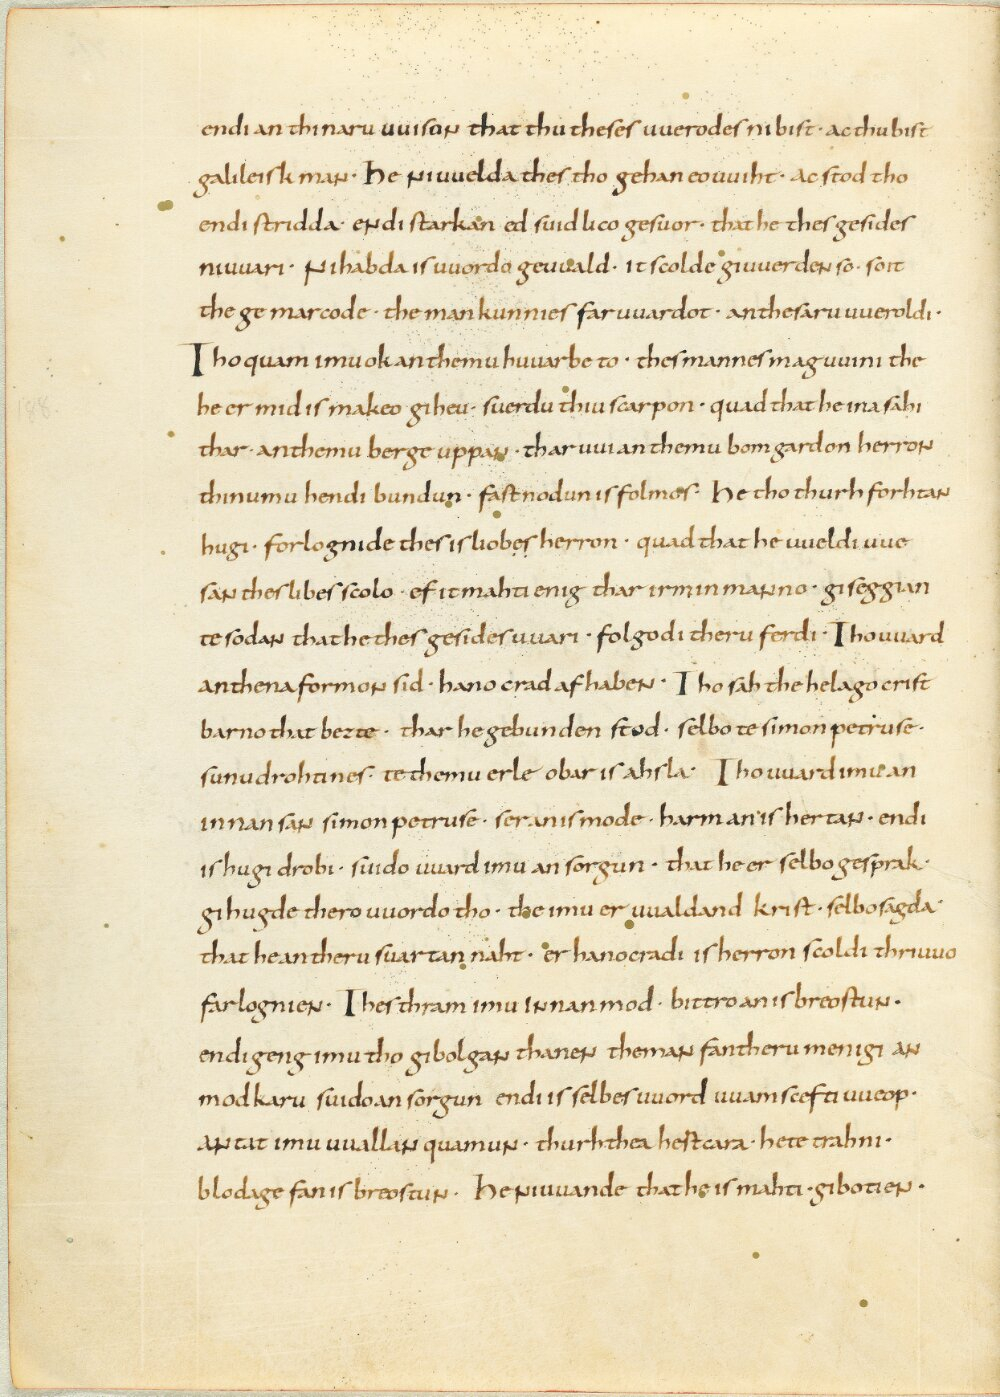 endi an thinaru uuisun that thu theses uuerodes ni bist · ac thu bist
galileisk man · he ni uuelda thes tho gehan eouuiht · ac stod tho
endi stridda · endi starkan ed suidlico gesuor · that he thes gesides
ni uuari · Ni habda is uuordo geuuald · it scolde giuuerden so · so it
the ge marcode · the mankunnies faruuardot · an thesaru uueroldi ·
Tho quam imu ok an themu huuarbe to · thes mannes maguuini the
he er mid is makeo giheu · suerdu thiu scarpon · quad that he ina sahi
thar · an themu berge uppan · thar uui an themu bomgardon herron
thinumu hendi bundun · fastnodun is folmos · he tho thurh forhtan
hugi · forlognide thes is liobes herron · quad that he uueldi uue
san thes libes scolo · ef it mahti enig thar irminmanno · giseggian
te sodan that he thes gesides uuari · folgodi theru ferdi · Tho uuard
an thena formon sid · hanocrad afhaben · Tho sah the helago crist
barno that bezte · thar he gebunden stod · selbo te simon petruse ·
sunu drohtines · te themu erle obar is ahsla · Tho uuard imu an
innan san simon petruse · ser an is mode · harm an is hertan · endi
is hugi drobi · suido uuard imu an sorgun · that he er selbo gesprak ·
gihugde thero uuordo tho · the imu er uualdand krist · selbo sagda ·
that he an theru suartan naht · er hanocradi is herron scoldi thriuuo
farlognien · Thes thram imu innan mod · bittro an is breostun ·
endi geng imu tho gibolgan thanen the man fan theru menigi an
modkaru suido an sorgun endi is selbes uuord uuamscefti uueop ·
antat imu uuallan quamun · thurh thea hertcara · hete trahni ·
blodage fan is breostun · he ni uuande that he is mahti · gibotien ·